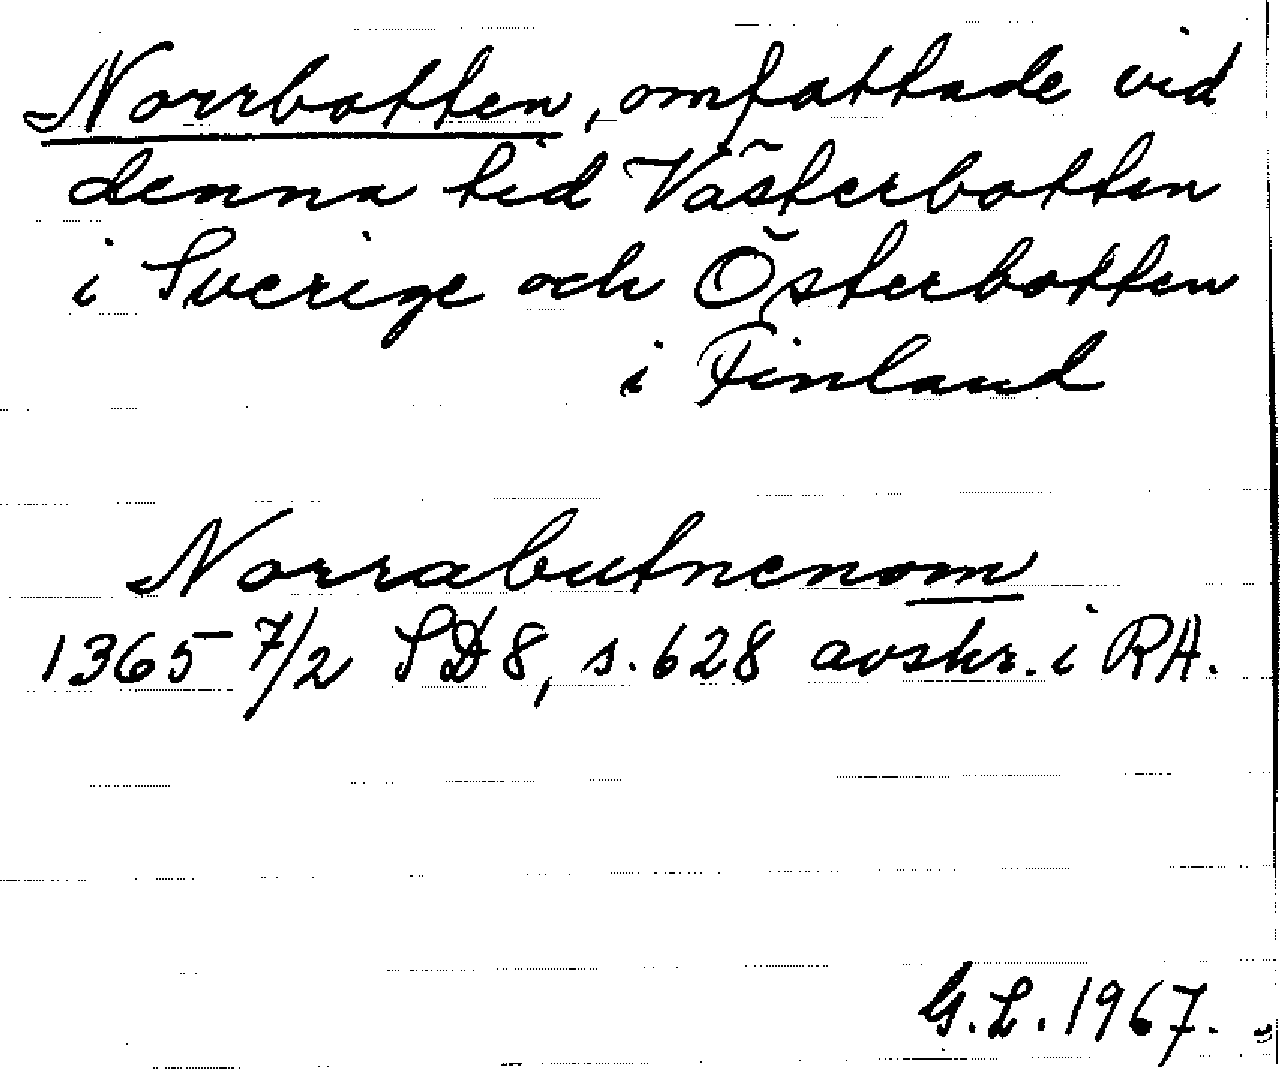 Norrbotten, omfattade vid
denna tid Västerbotten
i Sverige och Österbotten
i Finland
Norrabutnenom
1365 7/2 SD 8, s. 628 avskr. i RA.
G.L. 1967.